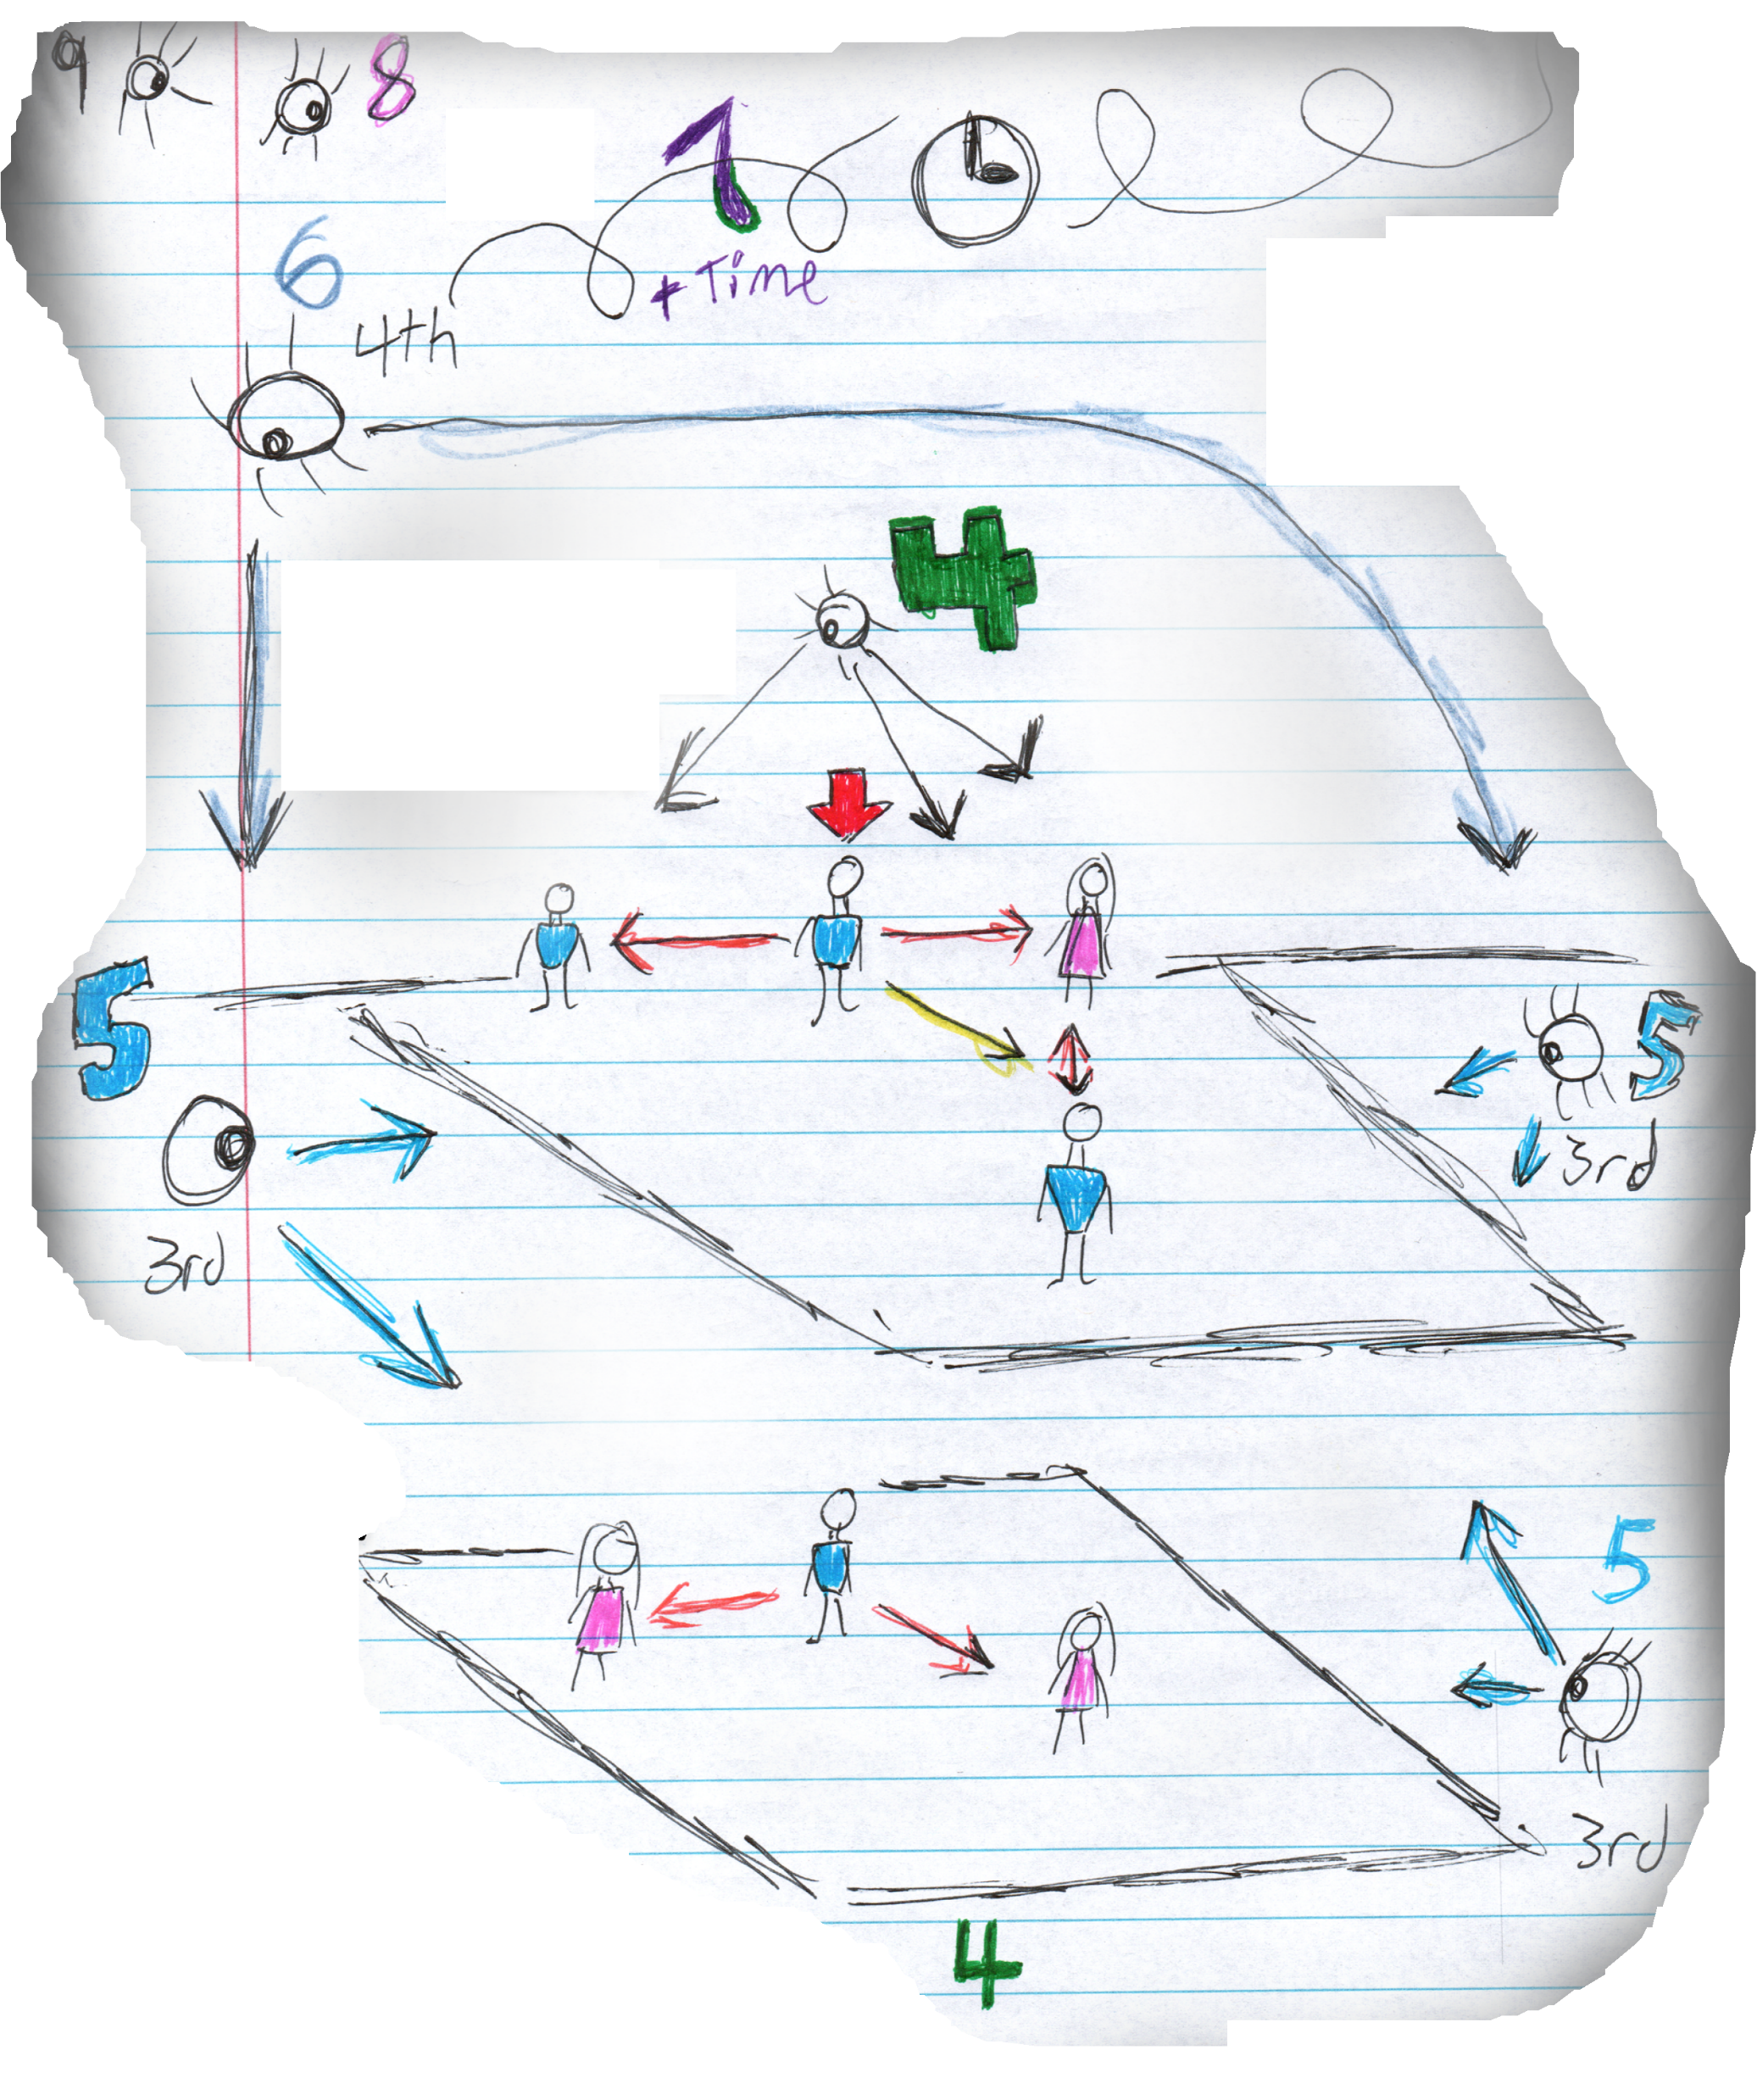 9 8
7
+ Time
6
4th
4
5
5
3rd
3rd
5
3rd
4